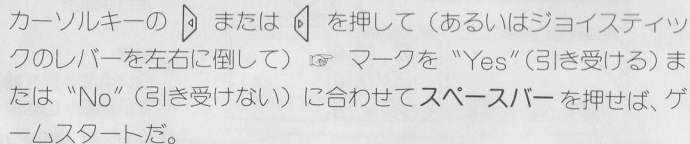 カーソルキーの ◁ または ▷ を押して（あるいはジョイスティッ
クのレバーを左右に倒して）☞ マークを “Yes”（引き受ける）ま
たは “No”（引き受けない）に合わせてスペースバーを押せば、ゲ
ームスタートだ。